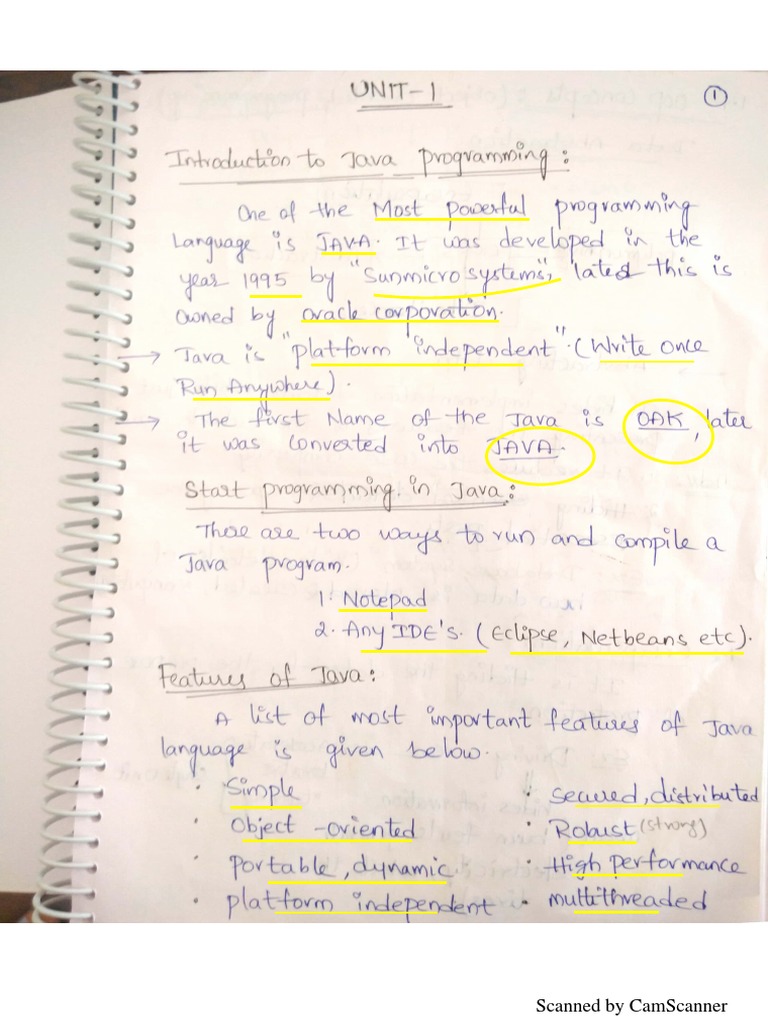 UNIT-1
1
Introduction to Java programming:
One of the Most powerful programming
Language is JAVA. It was developed in the
year 1995 by "Sunmicrosystems", lated this is
owned by oracle corporation.
→ Java is "platform independent". (Write once
Run Anywhere).
→ The first Name of the Java is OAK, later
it was converted into JAVA.
Start programming in Java:
There are two ways to run and compile a
Java program.
1. Notepad
2. Any IDE's. (Eclipse, Netbeans etc).
Features of Java:
A list of most important features of Java
language is given below.
· Simple · secured, distributed
· Object-oriented · Robust (strong)
· portable, dynamic. · High performance
· platform independent · multithreaded
Scanned by CamScanner